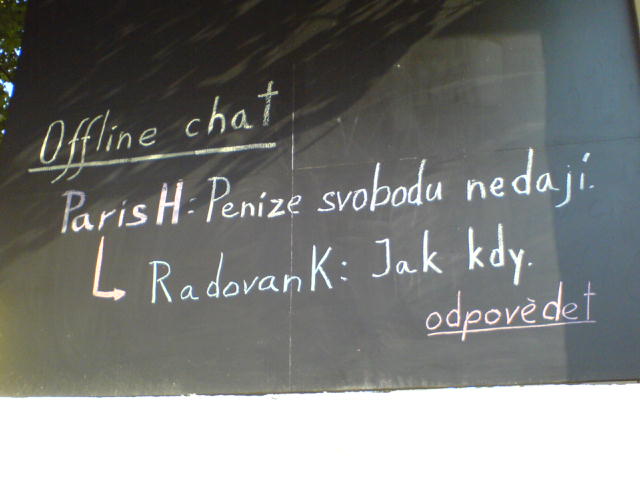 Offline chat
ParisH: Peníze svobodu nedají.
RadovanK: Jak kdy.
odpovědet